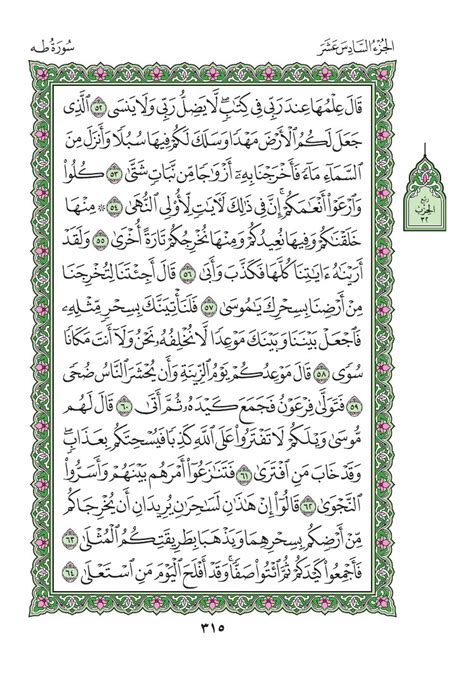 الجزء السادس عشر
سورة طه
قَالَ عِلْمُهَا عِندَ رَبِّي فِي كِتَٰبٍۖ لَّا يَضِلُّ رَبِّي وَلَا يَنسَى ٥٢ ٱلَّذِي
جَعَلَ لَكُمُ ٱلْأَرْضَ مَهْدًا وَسَلَكَ لَكُمْ فِيهَا سُبُلًا وَأَنزَلَ مِنَ
ٱلسَّمَآءِ مَآءً فَأَخْرَجْنَا بِهِۦٓ أَزْوَٰجًا مِّن نَّبَاتٍ شَتَّىٰ ٥٣ كُلُوا۟
وَٱرْعَوْا۟ أَنْعَٰمَكُمْۗ إِنَّ فِي ذَٰلِكَ لَأٓيَٰتٍ لِّأُو۟لِي ٱلنُّهَىٰ ٥٤ ۞ مِنْهَا
خَلَقْنَٰكُمْ وَفِيهَا نُعِيدُكُمْ وَمِنْهَا نُخْرِجُكُمْ تَارَةً أُخْرَىٰ ٥٥ وَلَقَدْ
أَرَيْنَٰهُ ءَايَٰتِنَا كُلَّهَا فَكَذَّبَ وَأَبَىٰ ٥٦ قَالَ أَجِئْتَنَا لِتُخْرِجَنَا
مِنْ أَرْضِنَا بِسِحْرِكَ يَٰمُوسَىٰ ٥٧ فَلَنَأْتِيَنَّكَ بِسِحْرٍ مِّثْلِهِۦ
فَٱجْعَلْ بَيْنَنَا وَبَيْنَكَ مَوْعِدًا لَّا نُخْلِفُهُۥ نَحْنُ وَلَآ أَنتَ مَكَانًا
سُوًى ٥٨ قَالَ مَوْعِدُكُمْ يَوْمُ ٱلزِّينَةِ وَأَن يُحْشَرَ ٱلنَّاسُ ضُحًى
٥٩ فَتَوَلَّىٰ فِرْعَوْنُ فَجَمَعَ كَيْدَهُۥ ثُمَّ أَتَىٰ ٦٠ قَالَ لَهُم
مُّوسَىٰ وَيْلَكُمْ لَا تَفْتَرُوا۟ عَلَى ٱللَّهِ كَذِبًا فَيُسْحِتَكُم بِعَذَابٍۖ
وَقَدْ خَابَ مَنِ ٱفْتَرَىٰ ٦١ فَتَنَٰزَعُوٓا۟ أَمْرَهُم بَيْنَهُمْ وَأَسَرُّوا۟
ٱلنَّجْوَىٰ ٦٢ قَالُوٓا۟ إِنْ هَٰذَٰنِ لَسَٰحِرَٰنِ يُرِيدَانِ أَن يُخْرِجَاكُم
مِّنْ أَرْضِكُم بِسِحْرِهِمَا وَيَذْهَبَا بِطَرِيقَتِكُمُ ٱلْمُثْلَىٰ ٦٣
فَأَجْمِعُوا۟ كَيْدَكُمْ ثُمَّ ٱئْتُوا۟ صَفًّاۚ وَقَدْ أَفْلَحَ ٱلْيَوْمَ مَنِ ٱسْتَعْلَىٰ ٦٤
ربع
الحزب
٣٢
٣١٥